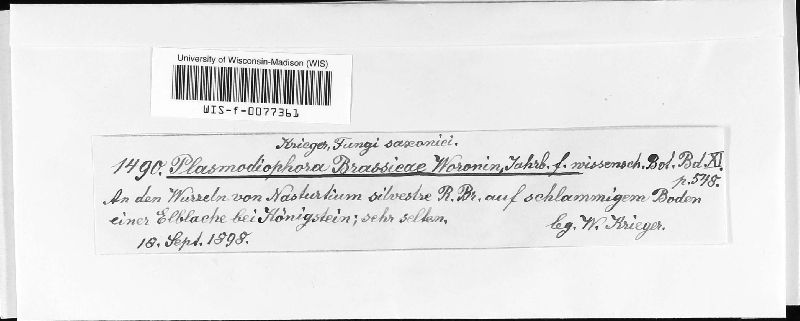 University of Wisconsin-Madison (WIS)
WIS-f-0077361
Krieger, Fungi saxonici.
1490. Plasmodiophora Brassicae Woronin, Jahrb. f. wissensch. Bot. Bd. XI.
p. 548.
An den Wurzeln von Nasturtium silvestre R. Br. auf schlammigem Boden
einer Elblache bei Königstein; sehr selten.
18. Sept. 1898.
leg. W. Krieger.